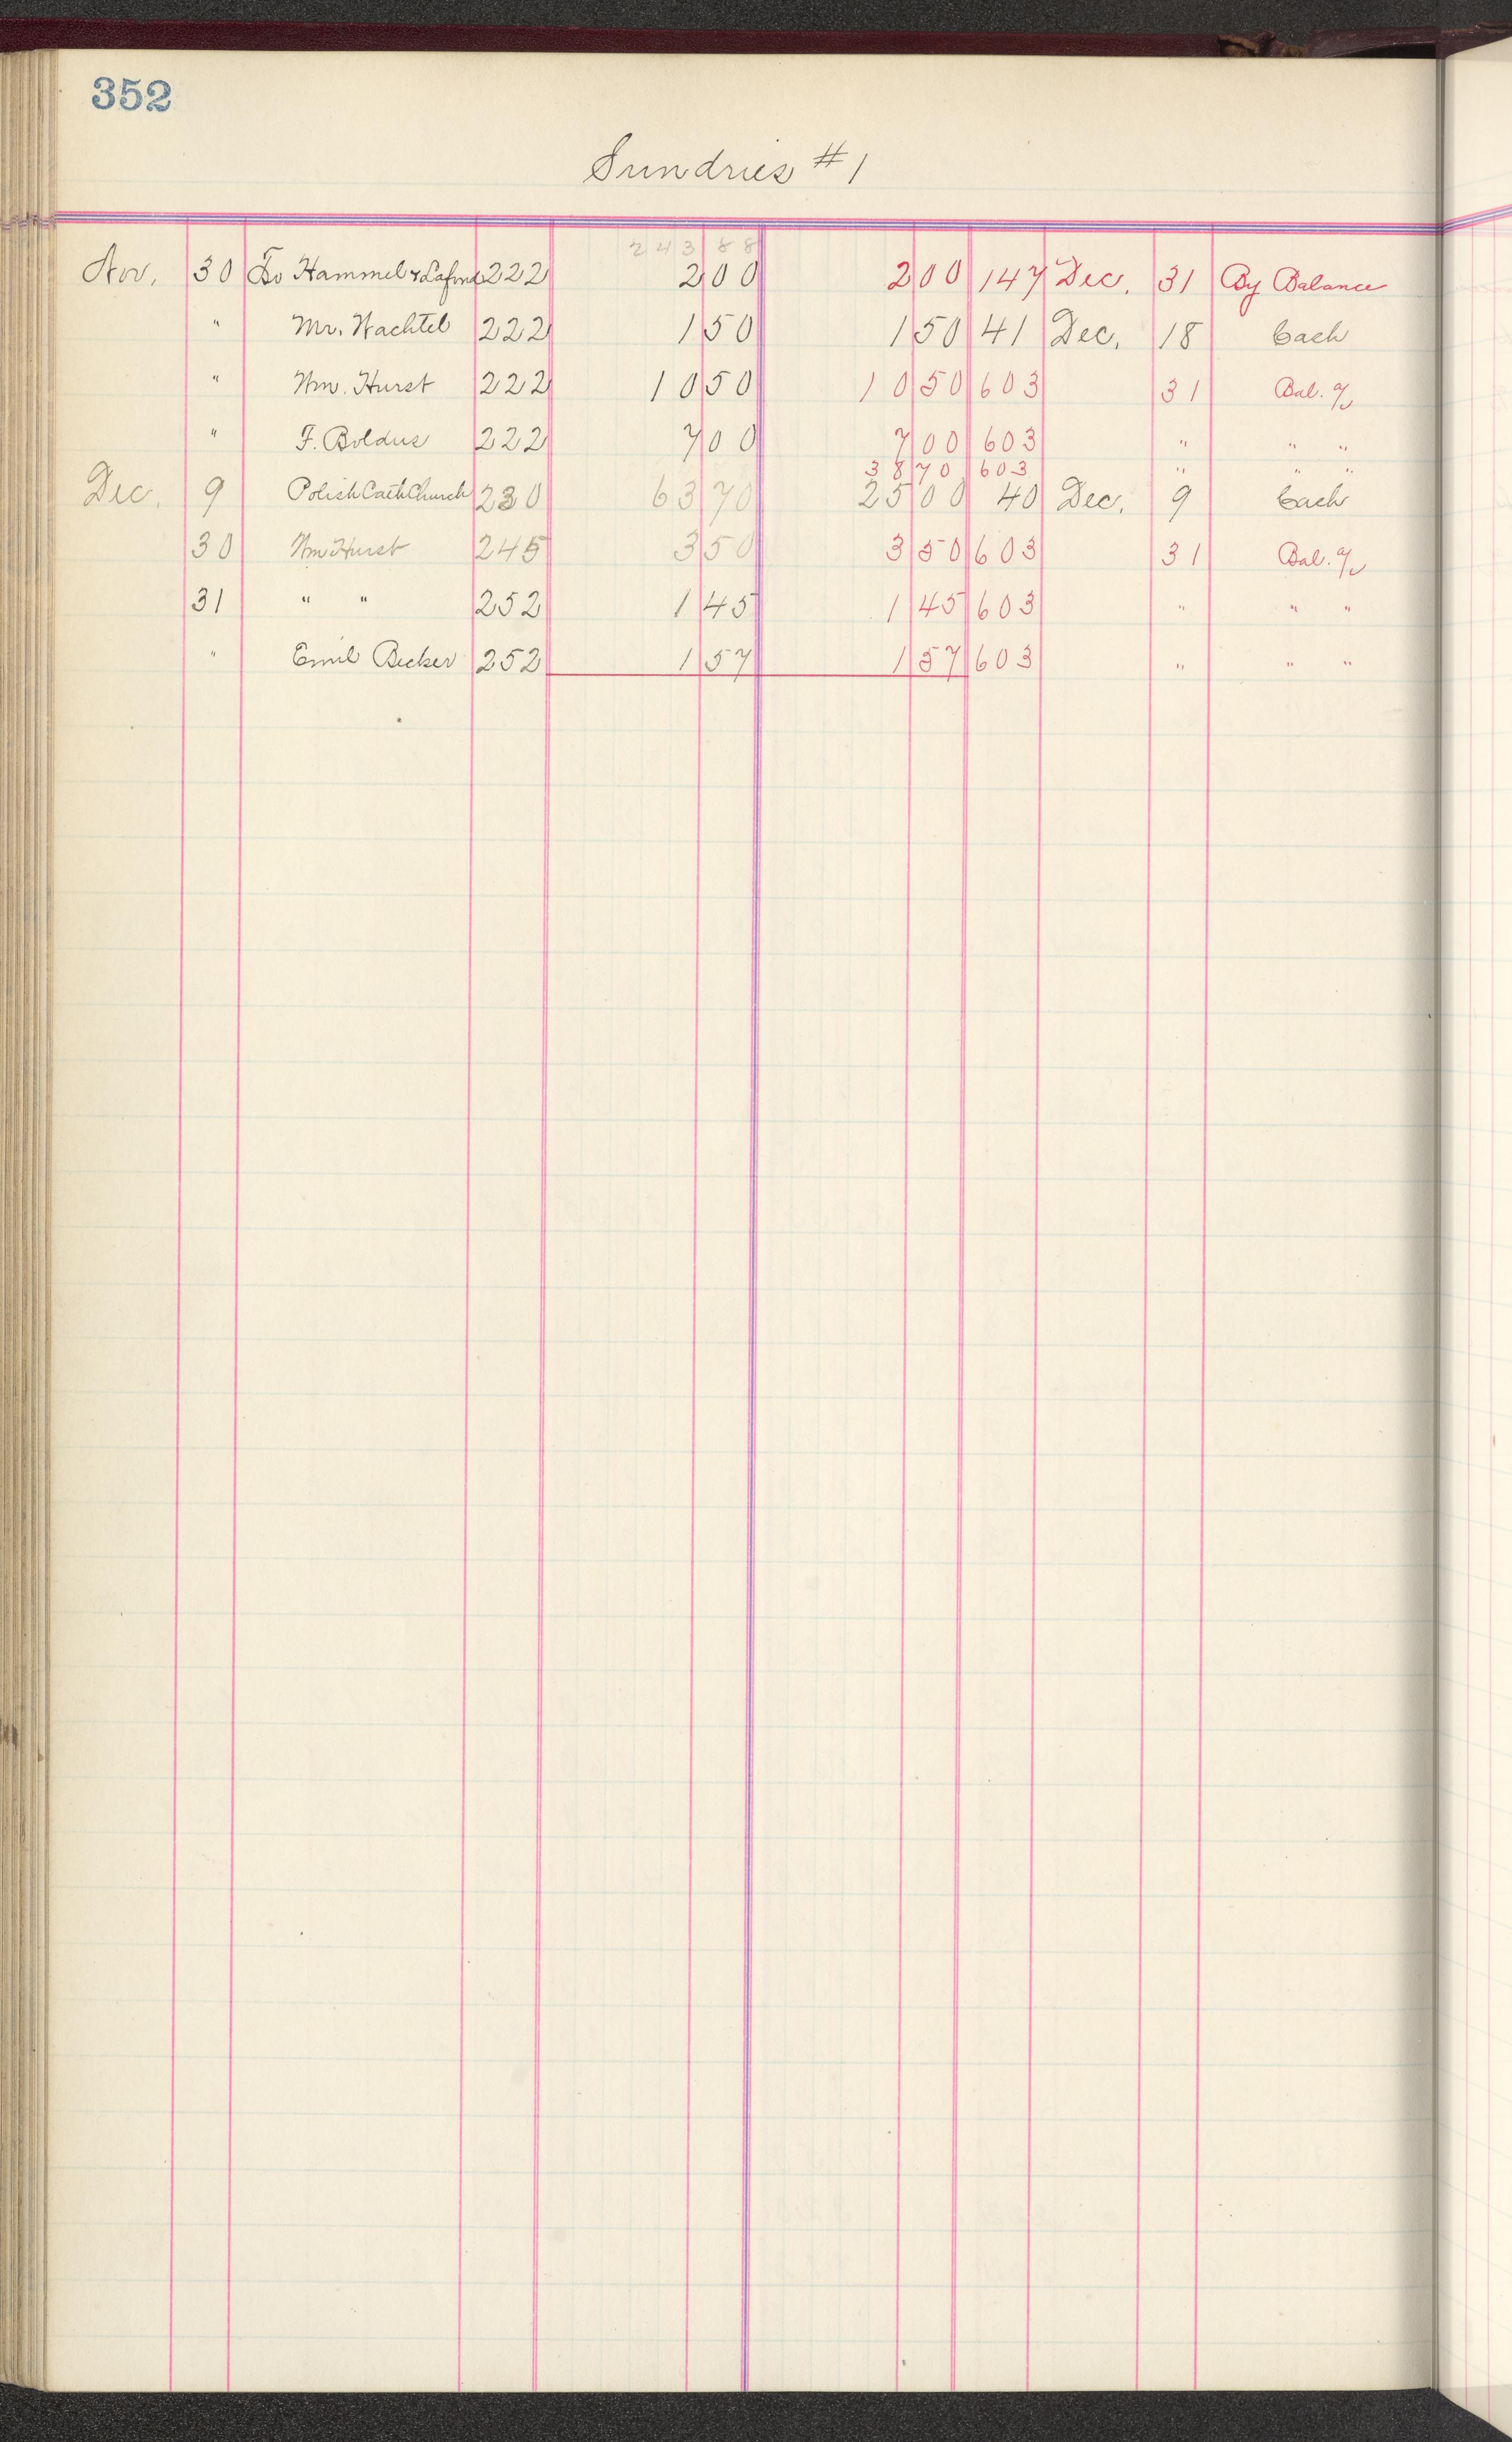 352
Sundries #1
243 88
Nov. 30 To Hammel & 222 2 00 2 00 147 Dec. 31 By Balance
" Mr. Wachtel 222 1 50 1 50 41 Dec. 18 Cash
" Wm. Hurst 222 10 50 10 50 603 31 Bal. a/c
" F. Boldus 222 7 00 7 00 603 " " "
38 70 603 " " "
Dec. 9 Polish Cath Church 230 63 70 25 00 40 Dec. 9 Cash
30 Wm Hurst 245 3 50 3 50 603 31 Bal. a/c
31 " " 252 1 45 1 45 603 " " "
" Emil Becker 252 1 57 1 57 603 " " "